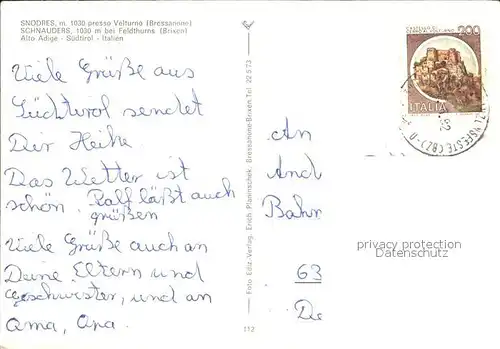 SNODRES, m. 1030 presso Velturno (Bressanone)
SCHNAUDERS, 1030 m bei Feldthurns (Brixen)
Alto Adige - Südtirol - Italien
Viele Grüße aus
Südtirol sendet
Dir Heike.
Das Wetter ist
schön. Ralf läßt auch
grüßen
Viele Grüße auch an
Deine Eltern und
Geschwister, und an
Oma, Opa.
Foto Ediz-Verlag, Erich Planinschek, Bressanone-Brixen, Tel. 22 5 73
112
200
ITALIA
An
And
Bahn
63
De
privacy protection
Datenschutz